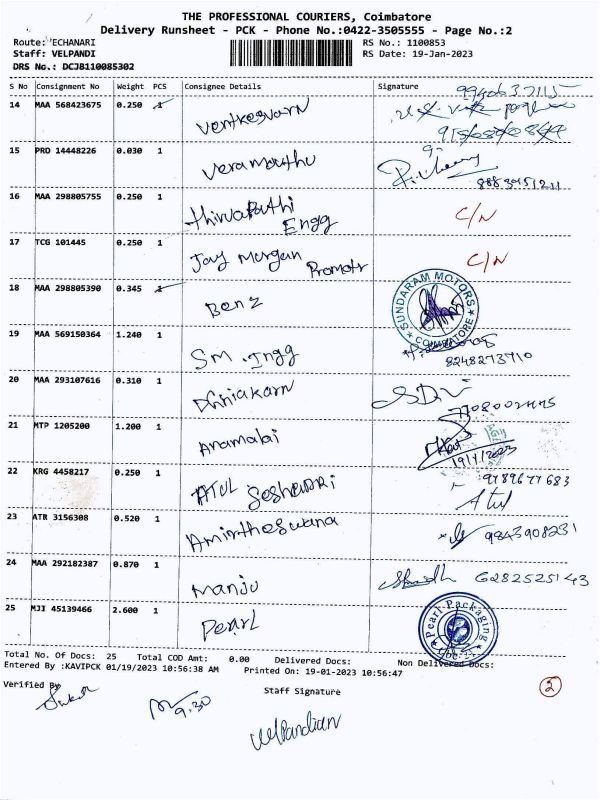 THE PROFESSIONAL COURIERS, Coimbatore
Delivery Runsheet - PCK - Phone No.:0422-3505555 - Page No.:2
Route: ECHANARI RS No.: 1100853
Staff: VELPANDI RS Date: 19-Jan-2023
DRS No.: DCJB110085302
S No Consignment No Weight PCS Consignee Details Signature
9940637115
14 MAA 568423675 0.250 1 Venkeswarn
15 PRD 14448226 0.030 1 Veramuthu
8883951211
16 MAA 298805755 0.250 1 thirupathi Engg C/N
17 TCG 101445 0.250 1 Jay Murgan Promotr C/N
18 MAA 298805390 0.345 1 Benz
SUNDARAM MOTORS
COIMBATORE
19 MAA 569150364 1.240 1 SM. Ingg
8248273710
20 MAA 293107616 0.310 1 Dhiniakarn
21 MTP 1205200 1.200 1 Anamalai
19/1/2023
22 KRG 4458217 0.250 1 ATUL Seshadri
9789677683
Atul
23 ATR 3156308 0.520 1 Amirtheswana 9843908231
24 MAA 292182387 0.870 1 Manju 6282525143
25 MJI 45139466 2.600 1 Pearl
Pearl Packaging
Total No. Of Docs: 25 Total COD Amt: 0.00 Delivered Docs: Non Delivered Docs:
Entered By :KAVIPCK 01/19/2023 10:56:38 AM Printed On: 19-01-2023 10:56:47
Verified By Staff Signature
2
9.30
Velpandian